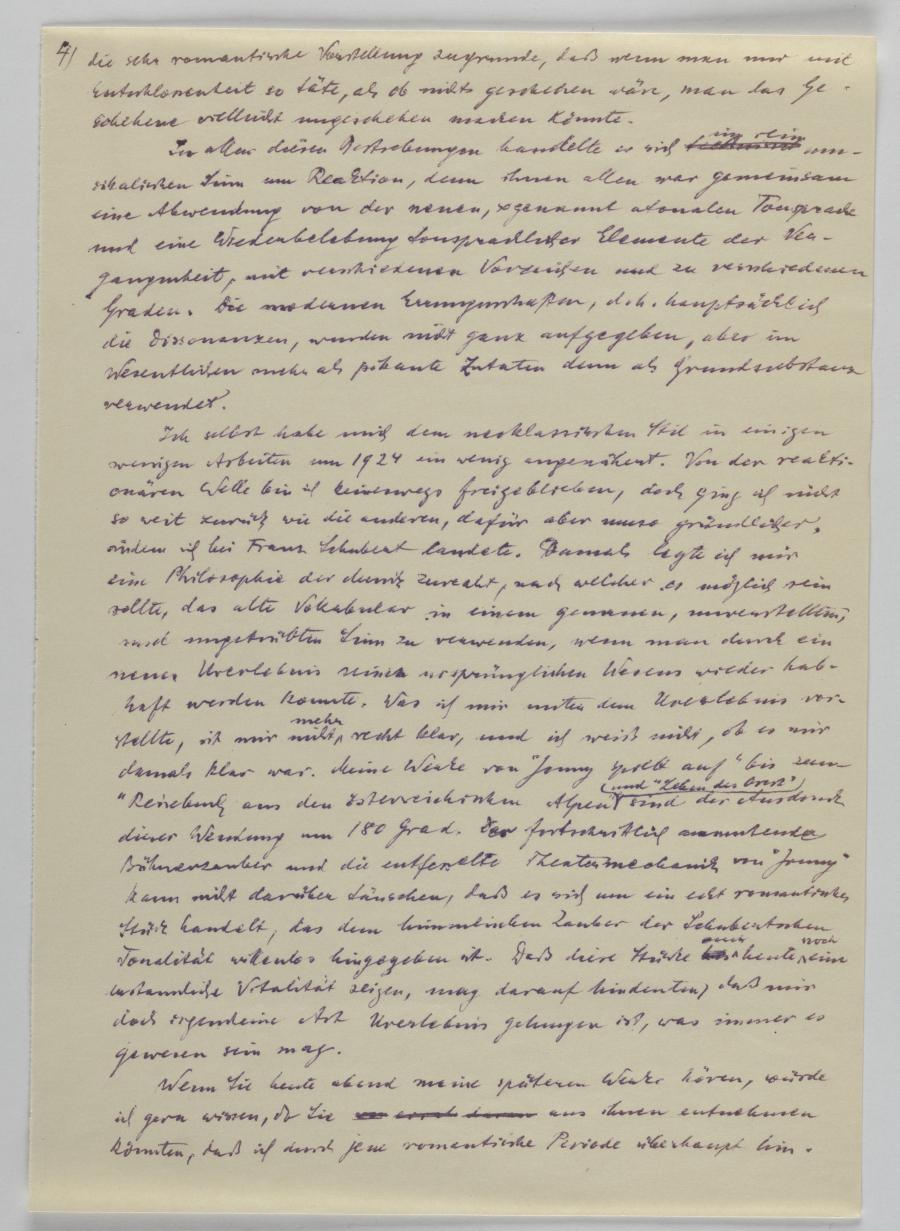 4) die sehr romantische Vorstellung zugrunde, daß wenn man nur mit
Entschlossenheit so täte, als ob nichts geschehen wäre, man das Ge-
schehene vielleicht ungeschehen machen könnte.
In allen diesen Bestrebungen handelte es sich im rein mu-
sikalischen Sinn um Reaktion, denn ihnen allen war gemeinsam
eine Abwendung von der neuen, sogenannt atonalen Tonsprache
und eine Wiederbelebung tonsprachlicher Elemente der Ver-
gangenheit, mit verschiedenen Vorzeichen und zu verschiedenen
Graden. Die modernen Errungenschaften, d.h. hauptsächlich
die Dissonanzen, wurden nicht ganz aufgegeben, aber im
Wesentlichen mehr als pikante Zutaten denn als Grundsubstanz
verwendet.
Ich selbst habe mich dem neoklassischen Stil in einigen
wenigen Arbeiten um 1924 ein wenig angenähert. Von der reakti-
onären Welle bin ich keineswegs freigeblieben, doch ging ich nicht
so weit zurück wie die anderen, dafür aber umso gründlicher,
indem ich bei Franz Schubert landete. Damals legte ich mir
eine Philosophie der Musik zurecht, nach welcher es möglich sein
sollte, das alte Vokabular in einem genauen, unverstellten,
und ungetrübten Sinn zu verwenden, wenn man durch ein
neues Urerlebnis seines ursprünglichen Wesens wieder hab-
haft werden konnte. Was ich mir unter dem Urerlebnis vor-
stellte, ist mir nicht mehr recht klar, und ich weiß nicht, ob es mir
damals klar war. Meine Werke von "Jonny spielt auf" bis zum
"Reisebuch aus den österreichischen Alpen" (und "Leben des Orest") sind der Ausdruck
dieser Wendung um 180 Grad. Der fortschrittlich anmutende
Bühnenzauber und die entfesselte Theatermechanik von "Jonny"
kann nicht darüber täuschen, daß es sich um ein echt romantisches
Stück handelt, das dem himmlischen Zauber der Schubertschen
Tonalität willenlos hingegeben ist. Daß diese Stücke auch heute noch eine
erstaunliche Vitalität zeigen, mag darauf hindeuten, daß mir
doch irgendeine Art Urerlebnis gelungen ist, was immer es
gewesen sein mag.
Wenn Sie heute abend meine späteren Werke hören, würde
ich gern wissen, ob Sie aus ihnen entnehmen
könnten, daß ich durch jene romantische Periode überhaupt hin-